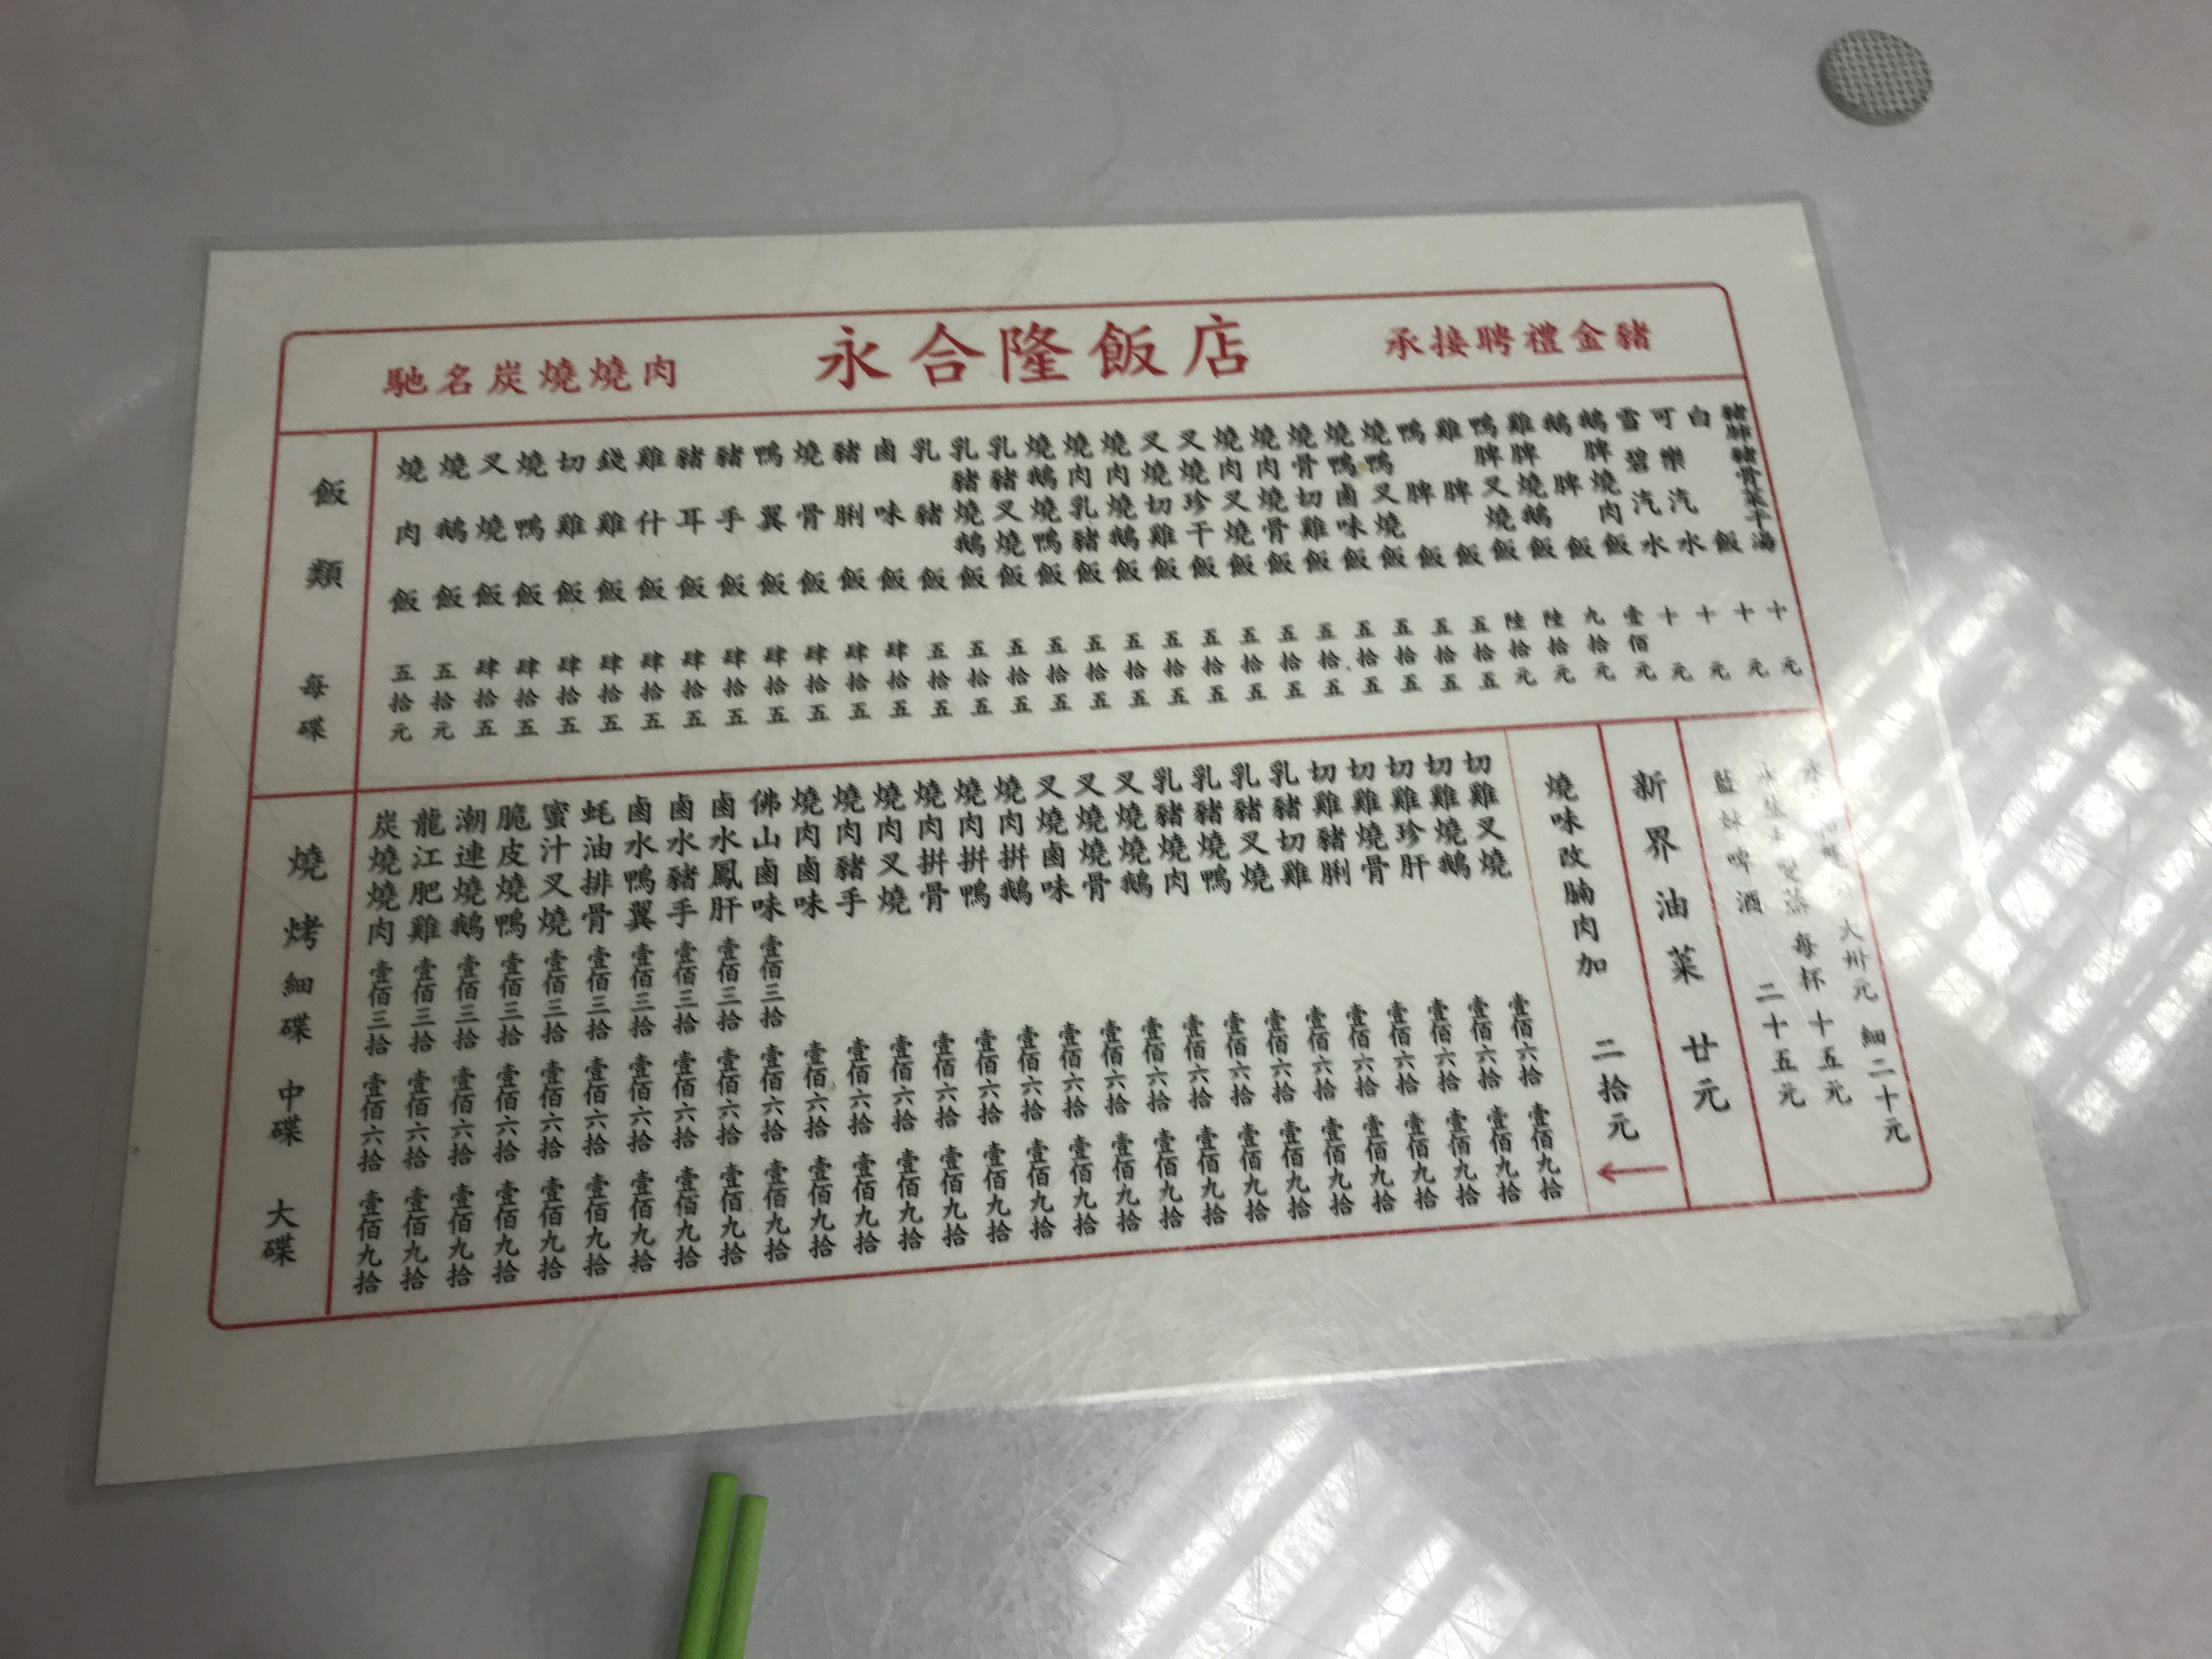 馳名炭燒燒肉
永合隆飯店
承接聘禮金豬
飯類 每碟
燒肉飯 五拾元
燒鵝飯 五拾元
叉燒飯 肆拾五
燒鴨飯 肆拾五
切雞飯 肆拾五
錢雞飯 肆拾五
雞什飯 肆拾五
豬耳飯 肆拾五
豬手飯 肆拾五
鴨翼飯 肆拾五
燒骨飯 肆拾五
豬脷飯 肆拾五
鹵味飯 肆拾五
乳豬飯 五拾五
乳豬燒鵝飯 五拾五
乳豬叉燒飯 五拾五
燒鵝燒鴨飯 五拾五
燒肉乳豬飯 五拾五
燒肉燒鵝飯 五拾五
叉燒切雞飯 五拾五
叉燒珍干飯 五拾五
燒肉叉燒飯 五拾五
燒肉燒骨飯 五拾五
燒骨切雞飯 五拾五
燒鴨鹵味飯 五拾五
燒鴨叉燒飯 五拾五
鴨脾飯 五拾五
雞脾飯 五拾五
鴨脾叉燒飯 陸拾元
雞脾燒鵝飯 陸拾元
鵝脾飯 九拾元
鵝脾燒肉飯 壹佰元
雪碧汽水 十元
可樂汽水 十元
白飯 十元
豬肺豬骨菜干湯 十元
燒烤 細碟 中碟 大碟
炭燒燒肉 壹佰三拾 壹佰六拾 壹佰九拾
龍江肥雞 壹佰三拾 壹佰六拾 壹佰九拾
潮連燒鵝 壹佰三拾 壹佰六拾 壹佰九拾
脆皮燒鴨 壹佰三拾 壹佰六拾 壹佰九拾
蜜汁叉燒 壹佰三拾 壹佰六拾 壹佰九拾
蚝油排骨 壹佰三拾 壹佰六拾 壹佰九拾
鹵水鴨翼 壹佰三拾 壹佰六拾 壹佰九拾
鹵水豬手 壹佰三拾 壹佰六拾 壹佰九拾
鹵水鳳肝 壹佰三拾 壹佰六拾 壹佰九拾
佛山鹵味 壹佰三拾 壹佰六拾 壹佰九拾
燒肉鹵味 壹佰六拾 壹佰九拾
燒肉豬手 壹佰六拾 壹佰九拾
燒肉叉燒 壹佰六拾 壹佰九拾
燒肉拼骨 壹佰六拾 壹佰九拾
燒肉拼鴨 壹佰六拾 壹佰九拾
燒肉拼鵝 壹佰六拾 壹佰九拾
叉燒鹵味 壹佰六拾 壹佰九拾
叉燒燒骨 壹佰六拾 壹佰九拾
叉燒燒鵝 壹佰六拾 壹佰九拾
乳豬燒肉 壹佰六拾 壹佰九拾
乳豬燒鴨 壹佰六拾 壹佰九拾
乳豬叉燒 壹佰六拾 壹佰九拾
乳豬切雞 壹佰六拾 壹佰九拾
切雞豬脷 壹佰六拾 壹佰九拾
切雞燒骨 壹佰六拾 壹佰九拾
切雞珍肝 壹佰六拾 壹佰九拾
切雞燒鵝 壹佰六拾 壹佰九拾
切雞叉燒 壹佰六拾 壹佰九拾
燒味改腩肉加 二拾元
新界油菜 廿元
藍妹啤酒 二十五元
雙蒸 每杯十五元
大卅元 細二十元